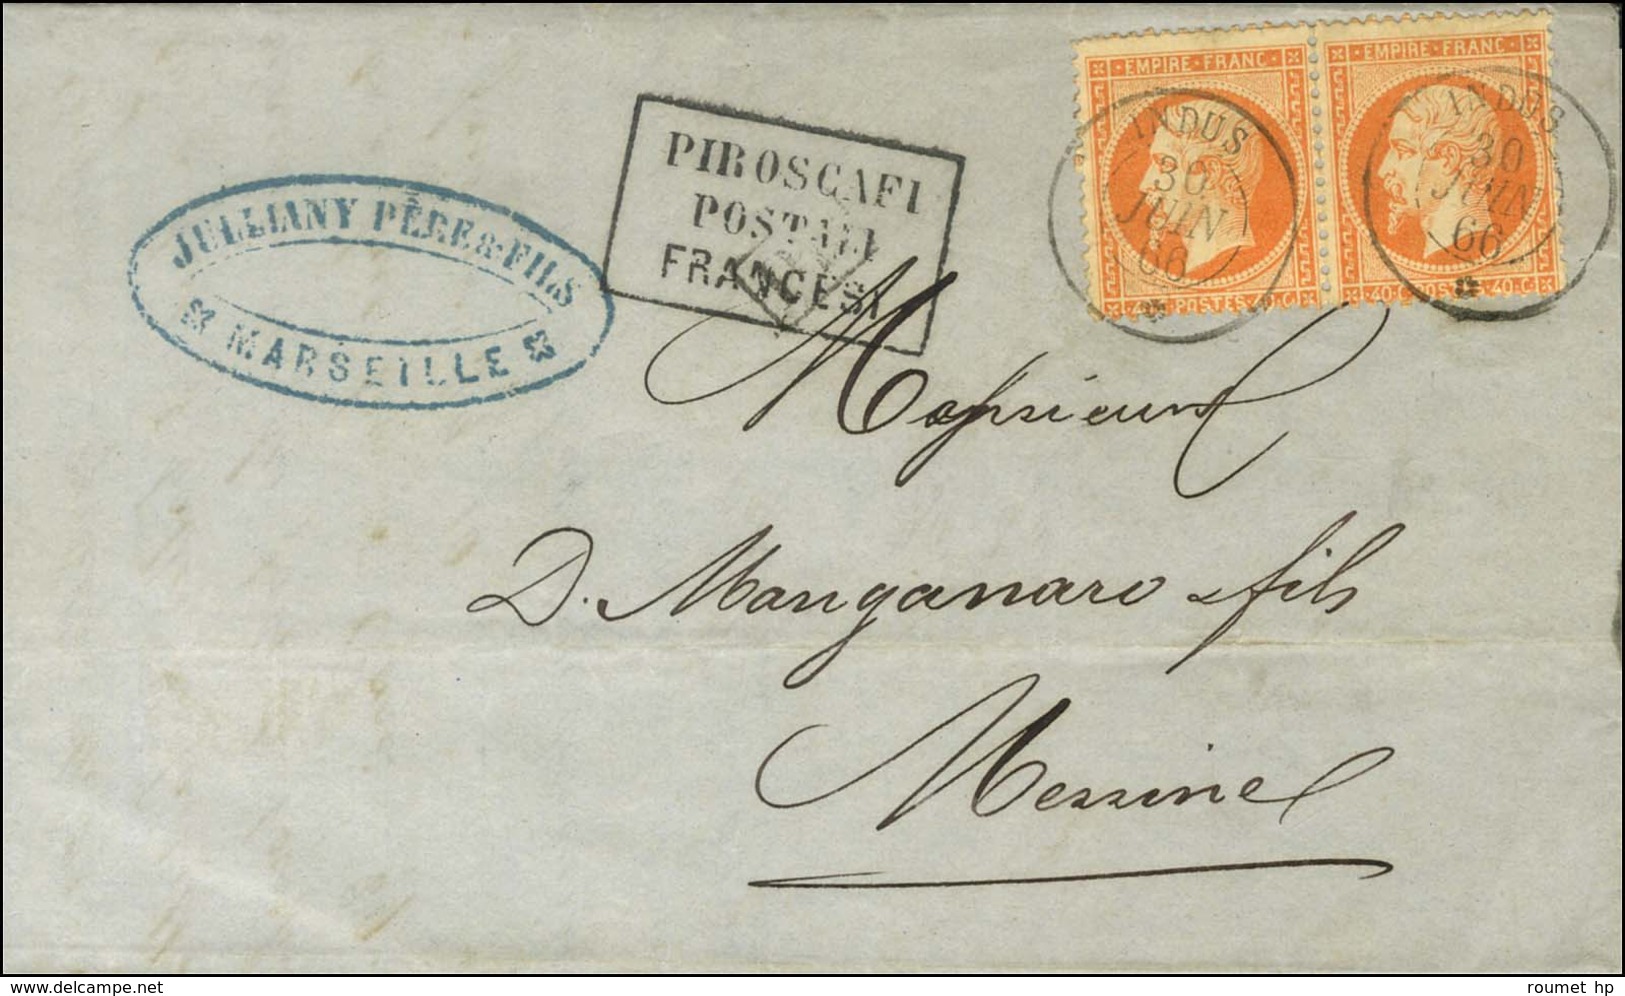 JULLIANY PÈRE & FILS
MARSEILLE
PIROSCAFI
POSTALI
FRANCESI
EMPIRE FRANC
40 C POSTES 40 C
INDUS
30
JUIN
66
EMPIRE FRANC
40 C POSTES 40 C
INDUS
30
JUIN
66
Monsieur
D. Manganaro & fils
Messine
roumet hp